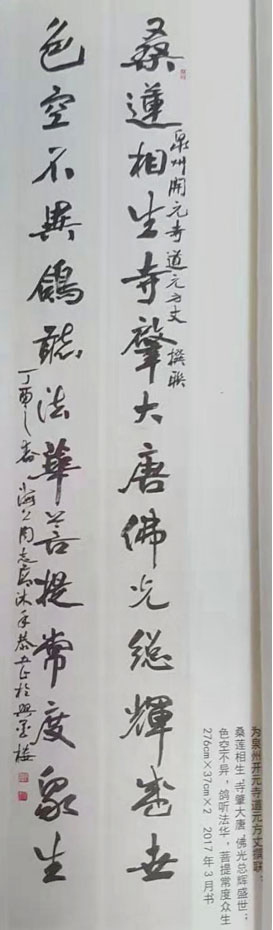 桑蓮相生寺肇大唐佛光總輝盛世
泉州開元寺道元方丈撰联
色空不異鴿聽法華菩提常度眾生
丁酉之春
为泉州开元寺道元方丈撰联：
桑莲相生，寺肇大唐，佛光总辉盛世；
色空不异，鸽听法华，菩提常度众生
276cm×37cm×2 2017年3月书